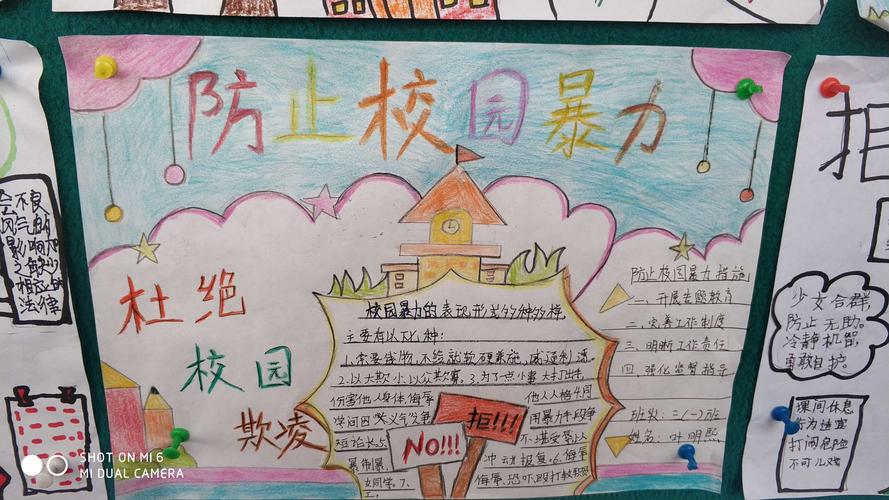 防止校园暴力
杜绝
校园
欺凌
校园暴力的表现形式多种多样
主要有以下几种:
1.索要钱物,不给就软硬兼施,威逼利诱。
2.以大欺小,以众欺寡。3.为了一点小事大打出手,
伤害他人身体,侮辱
他人人格.4.同
学间因
哥们义气
用暴力手段争
短论长.5.
不堪受辱以
暴制暴
冲动报复.6.侮辱
女同学.7.
侮辱、恐吓、殴打教职员
工。
NO!!!
拒!!!
防止校园暴力措施
一、开展专题教育
二、完善工作制度
三、明晰工作责任
四、强化监督指导
班级:三(一)班
姓名:叶明熙
不良
风气
影响
缺少
相应的
法律
少女合群,
防止无助。
冷静机智,
勇敢自护。
课间休息
打闹危险
不可儿戏
SHOT ON MI 6
MI DUAL CAMERA